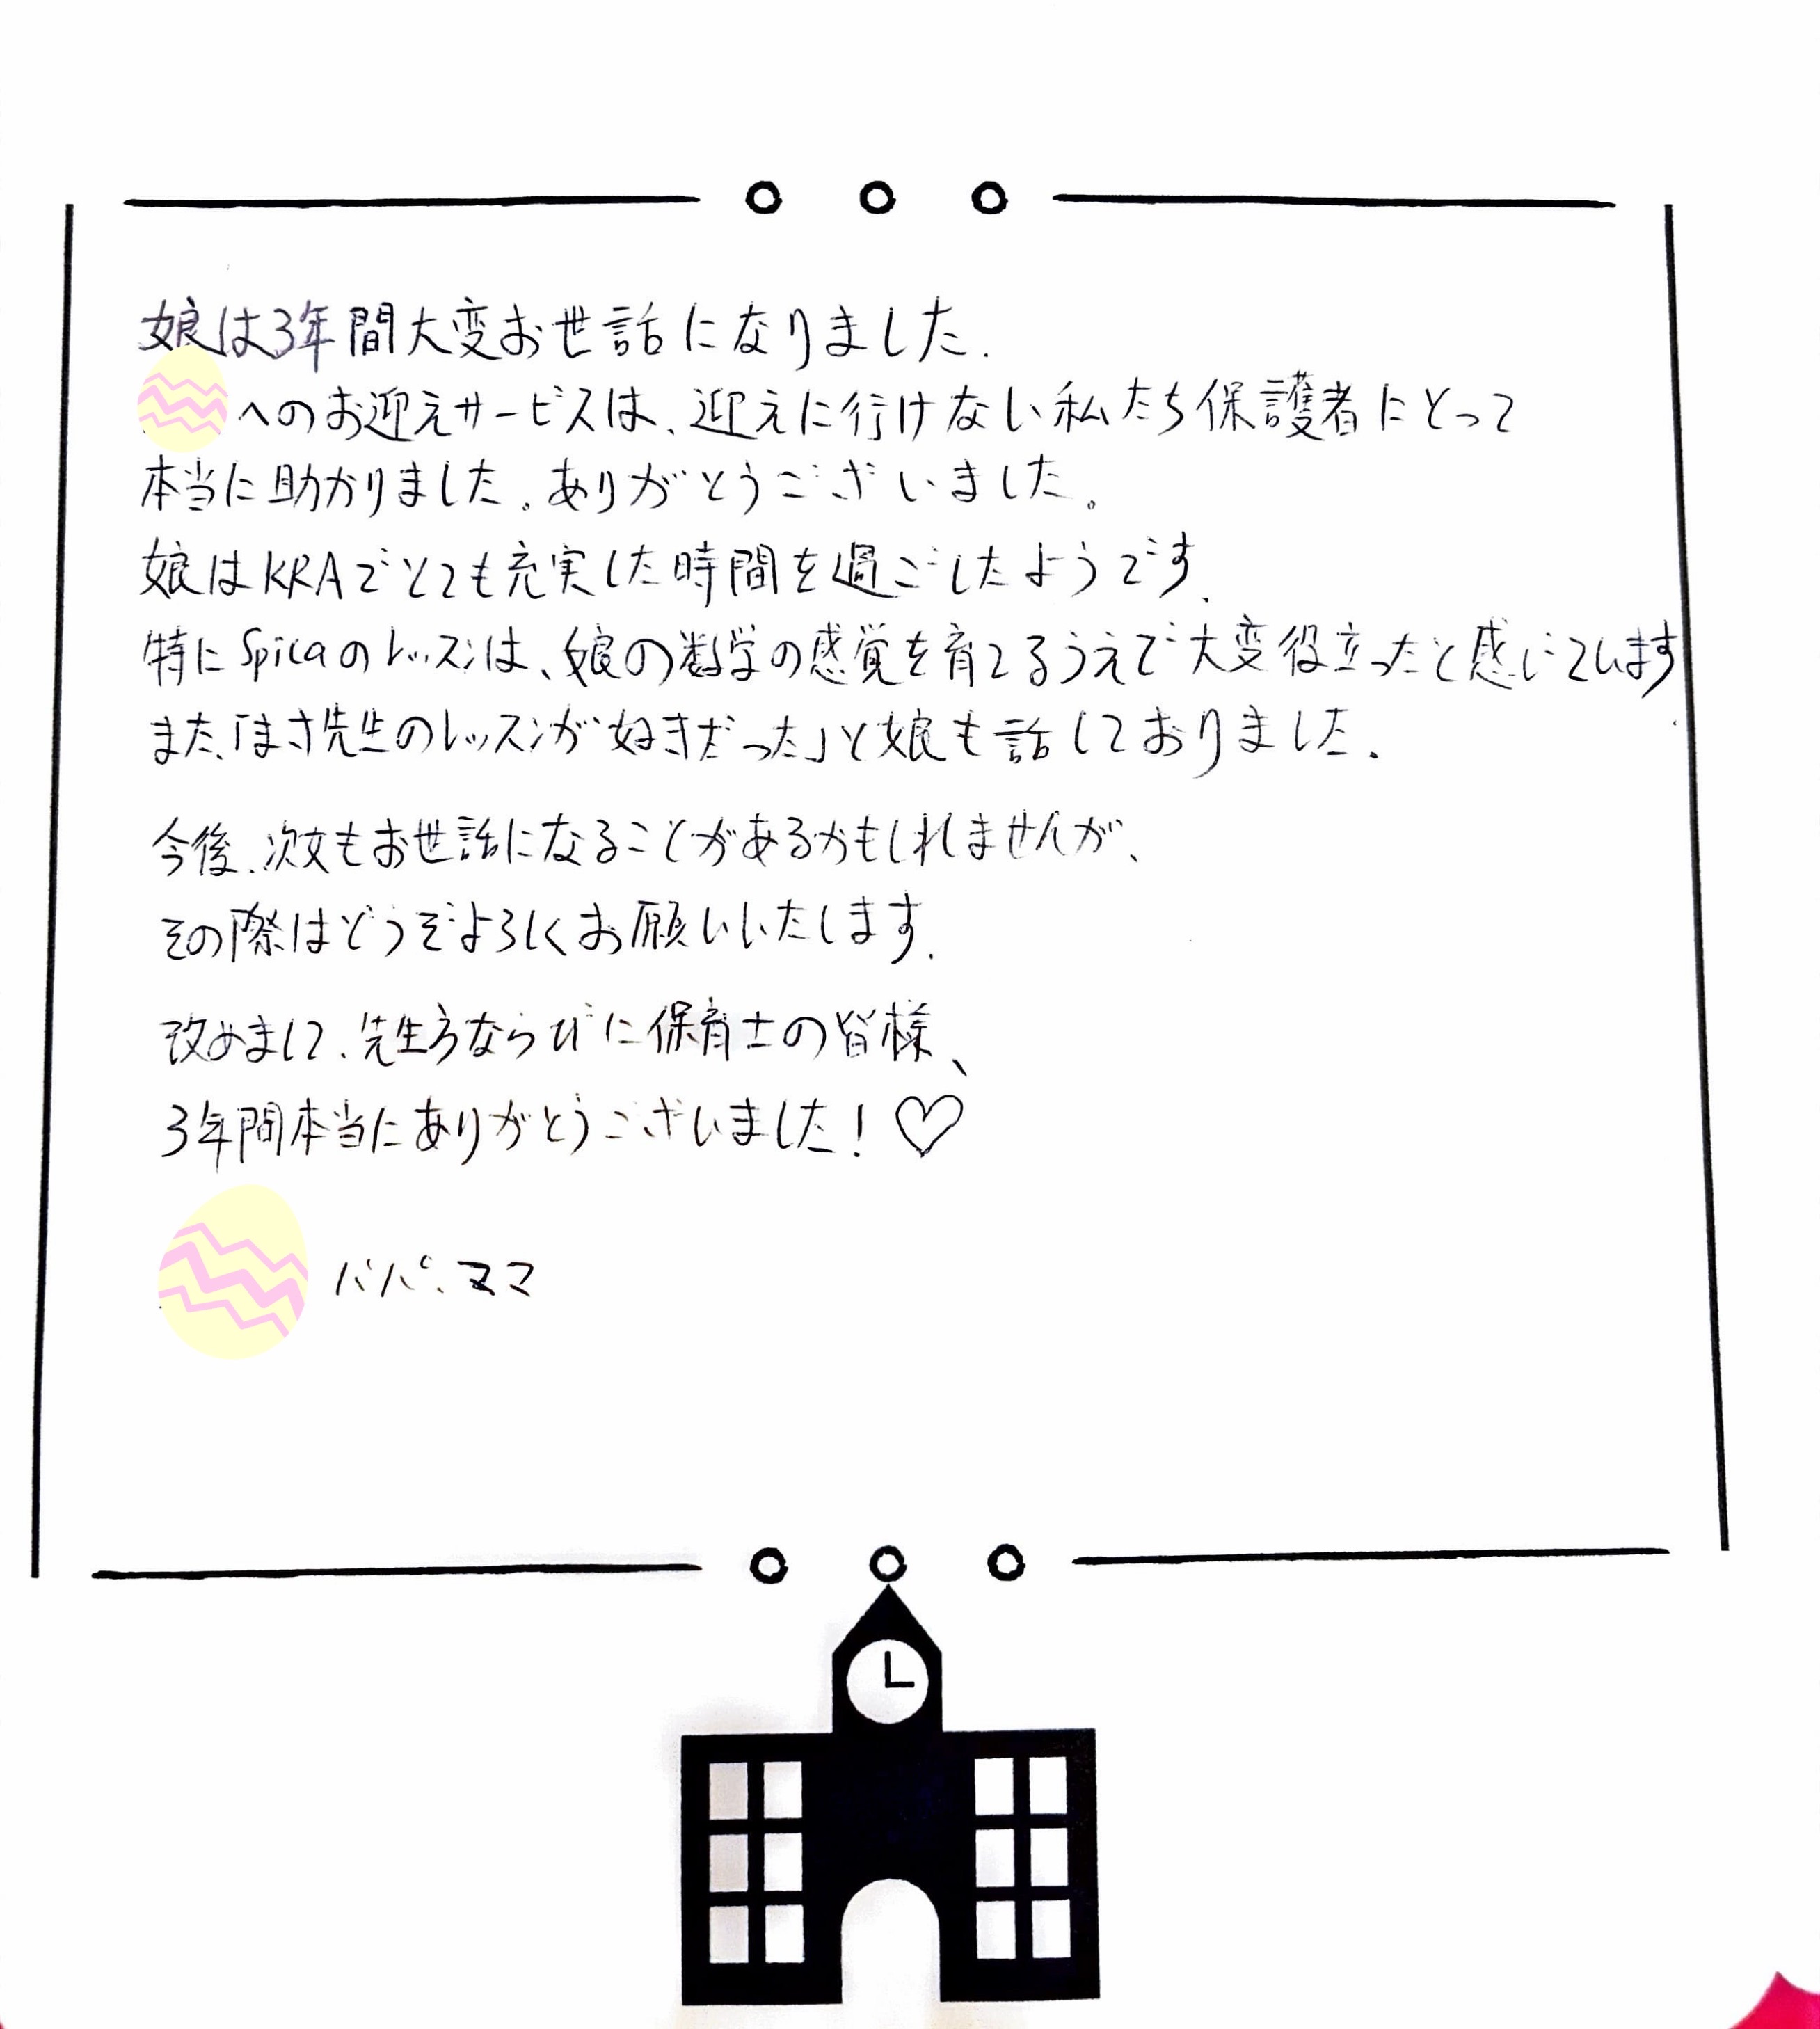 娘は3年間大変お世話になりました.
へのお迎えサービスは、迎えに行けない私たち保護者にとって
本当に助かりました。ありがとうございました。
娘はKRAでとても充実した時間を過ごしたようです.
特にSpicaのレッスンは、娘の数学の感覚を育てるうえで大変役立ったと感じています.
また、「まさ先生のレッスンが好きだった」と娘も話しておりました.
今後、次女もお世話になることがあるかもしれませんが、
その際はどうぞよろしくお願いいたします.
改めまして、先生方ならびに保育士の皆様、
3年間本当にありがとうございました!♡
パパ、ママ